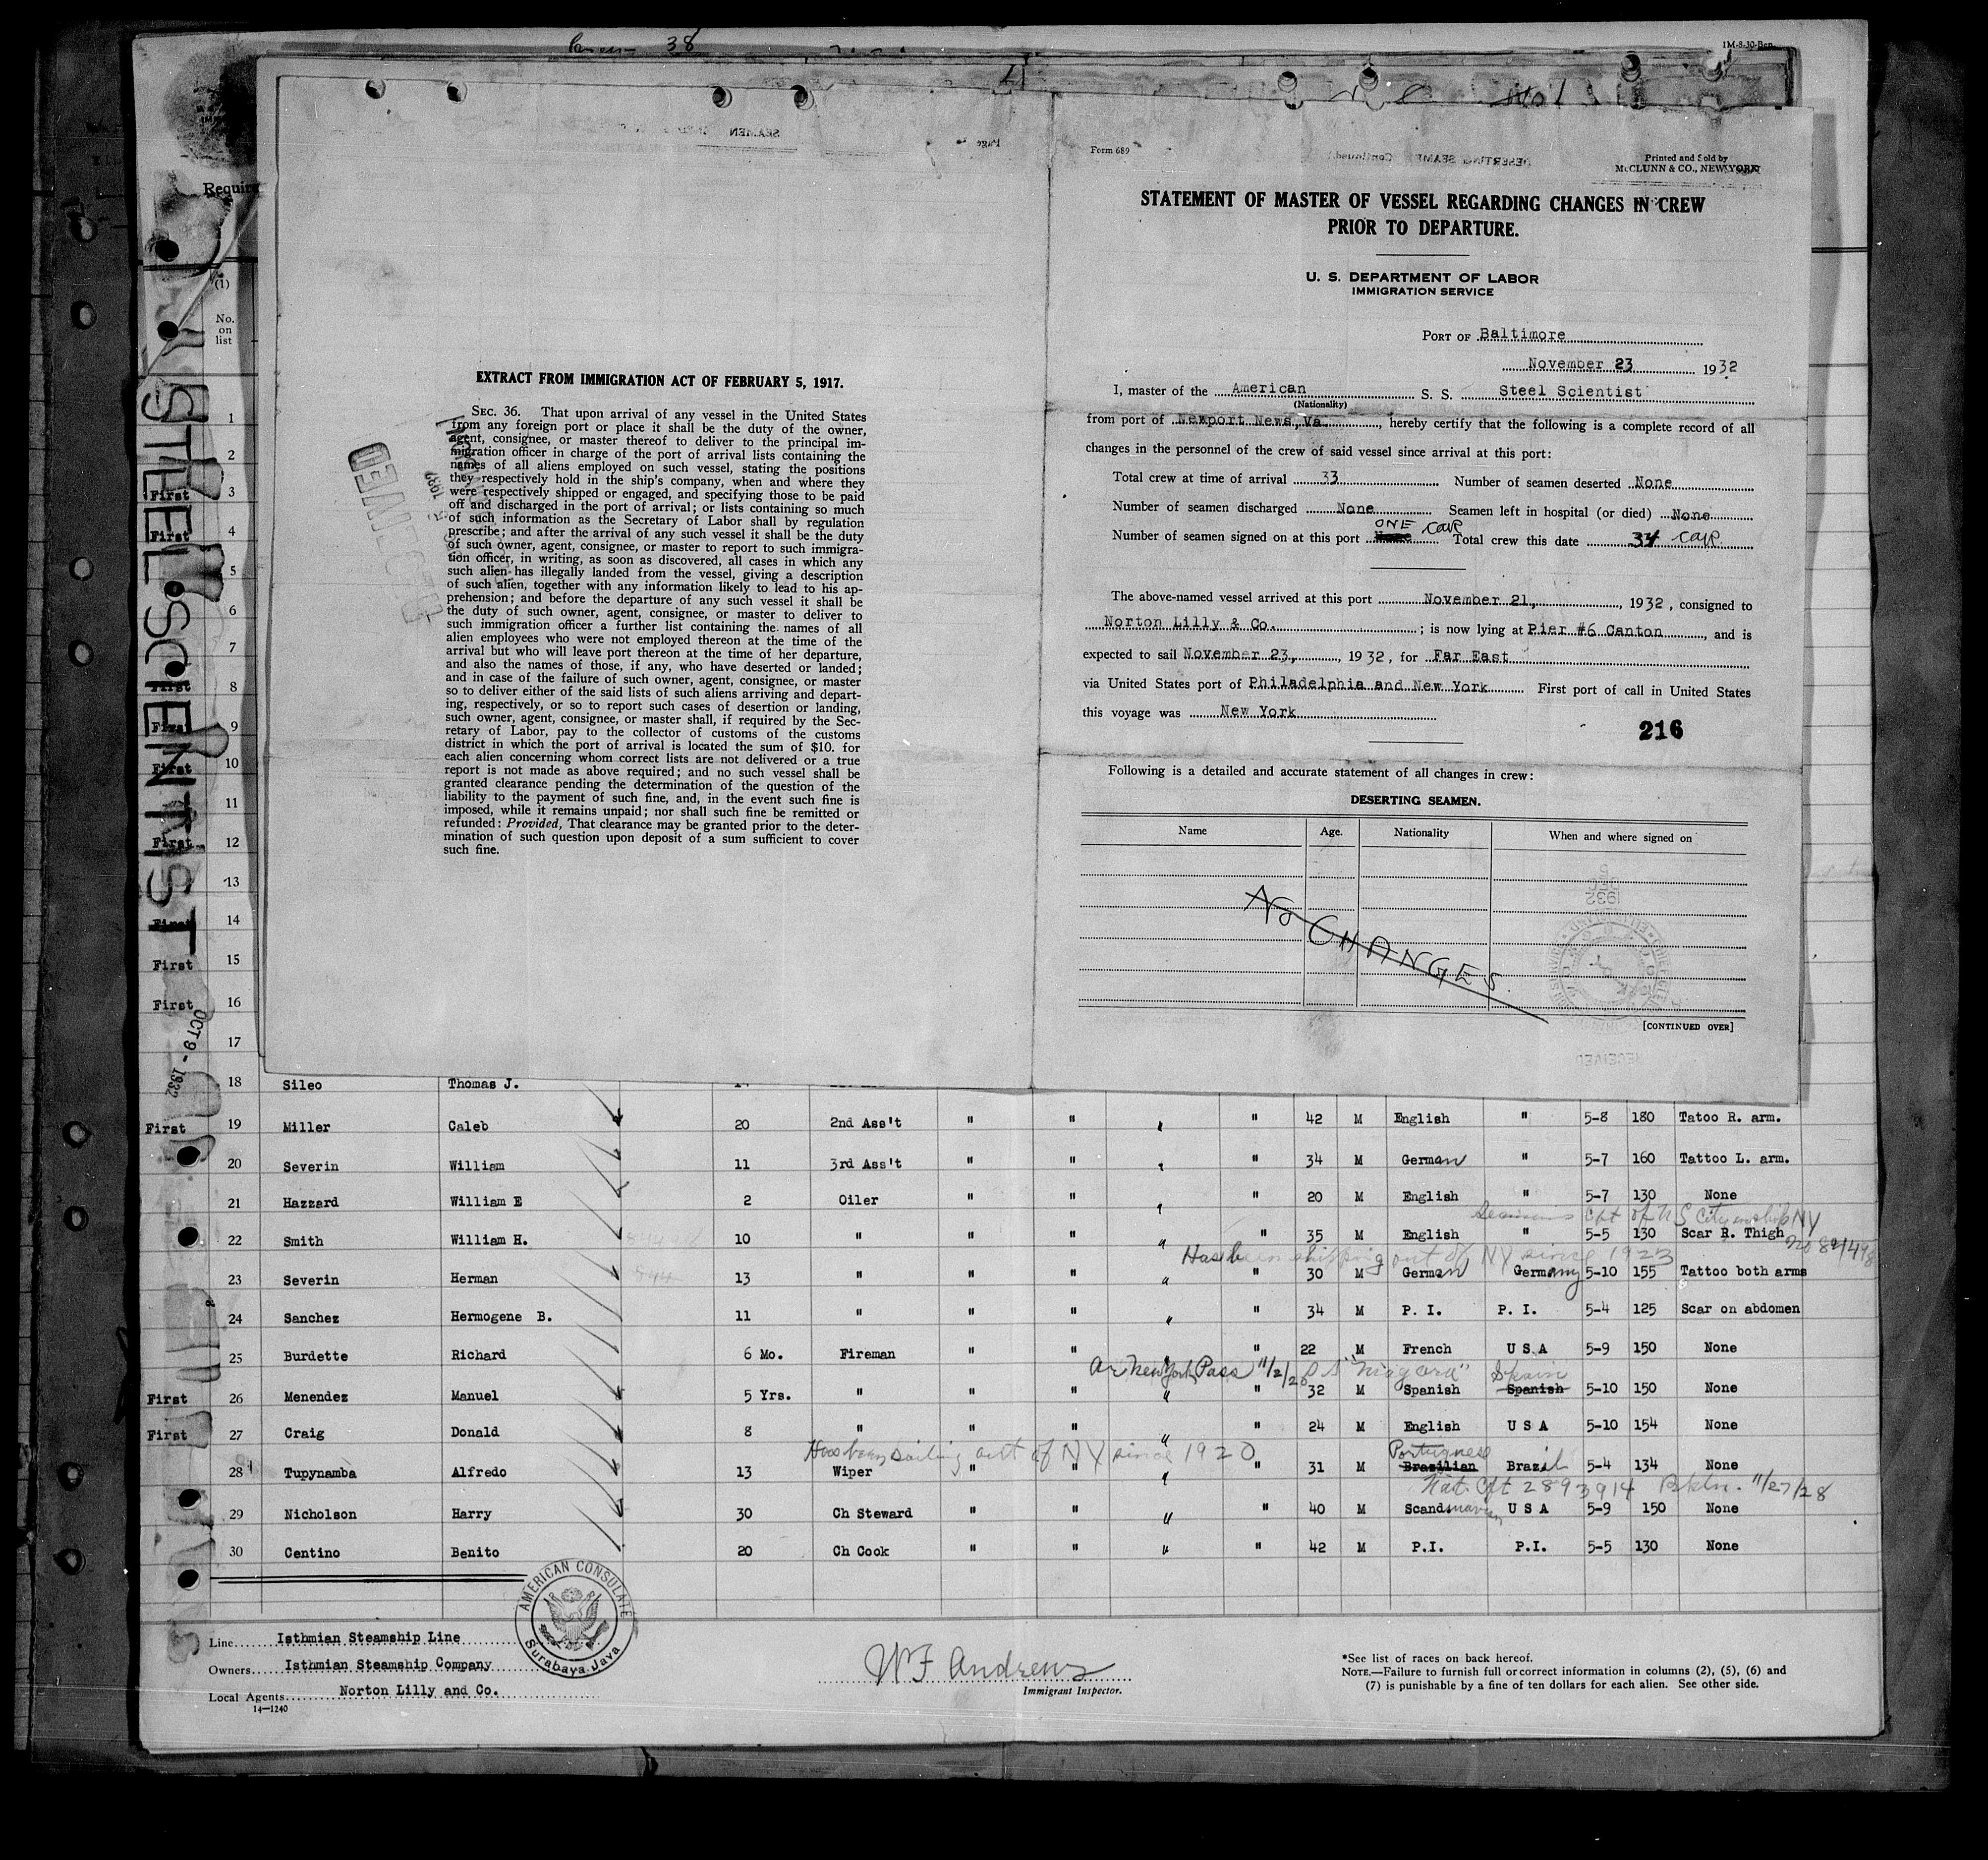 1M-8-30-Ben.
38
Form 689
Printed and Sold by
McCLUNN & CO., NEW YORK
STATEMENT OF MASTER OF VESSEL REGARDING CHANGES IN CREW
PRIOR TO DEPARTURE.
U. S. DEPARTMENT OF LABOR
IMMIGRATION SERVICE
PORT OF Baltimore
November 23 1932
I, master of the American S. S. Steel Scientist
(Nationality)
from port of Newport News, Va. , hereby certify that the following is a complete record of all
changes in the personnel of the crew of said vessel since arrival at this port:
Total crew at time of arrival 33 Number of seamen deserted None
Number of seamen discharged None Seamen left in hospital (or died) None
ONE
Number of seamen signed on at this port None Total crew this date 34
The above-named vessel arrived at this port November 21, , 1932, consigned to
Norton Lilly & Co. ; is now lying at Pier #6 Canton , and is
expected to sail November 23, , 1932, for Far East
via United States port of Philadelphia and New York First port of call in United States
this voyage was New York
216
Following is a detailed and accurate statement of all changes in crew:
DESERTING SEAMEN.
Name Age. Nationality When and where signed on
No CHANGES.
[CONTINUED OVER]
EXTRACT FROM IMMIGRATION ACT OF FEBRUARY 5, 1917.
SEC. 36. That upon arrival of any vessel in the United States
from any foreign port or place it shall be the duty of the owner,
agent, consignee, or master thereof to deliver to the principal im-
migration officer in charge of the port of arrival lists containing the
names of all aliens employed on such vessel, stating the positions
they respectively hold in the ship's company, when and where they
were respectively shipped or engaged, and specifying those to be paid
off and discharged in the port of arrival; or lists containing so much
of such information as the Secretary of Labor shall by regulation
prescribe; and after the arrival of any such vessel it shall be the duty
of such owner, agent, consignee, or master to report to such immigra-
tion officer, in writing, as soon as discovered, all cases in which any
such alien has illegally landed from the vessel, giving a description
of such alien, together with any information likely to lead to his ap-
prehension; and before the departure of any such vessel it shall be
the duty of such owner, agent, consignee, or master to deliver to
such immigration officer a further list containing the names of all
alien employees who were not employed thereon at the time of the
arrival but who will leave port thereon at the time of her departure,
and also the names of those, if any, who have deserted or landed;
and in case of the failure of such owner, agent, consignee, or master
so to deliver either of the said lists of such aliens arriving and depart-
ing, respectively, or so to report such cases of desertion or landing,
such owner, agent, consignee, or master shall, if required by the Sec-
retary of Labor, pay to the collector of customs of the customs
district in which the port of arrival is located the sum of $10. for
each alien concerning whom correct lists are not delivered or a true
report is not made as above required; and no such vessel shall be
granted clearance pending the determination of the question of the
liability to the payment of such fine, and, in the event such fine is
imposed, while it remains unpaid; nor shall such fine be remitted or
refunded: Provided, That clearance may be granted prior to the deter-
mination of such question upon deposit of a sum sufficient to cover
such fine.
RECEIVED
STEEL SCIENTIST
OCT 9 - 1932
(1)
No.
on
list
1
2
First 3
First 4
5
6
7
First 8
First 9
First 10
11
First 12
13
First 14
First 15
First 16
17
18 Sileo Thomas J.
First 19 Miller Caleb 20 2nd Ass't " " " " 42 M English " 5-8 180 Tatoo R. arm.
20 Severin William 11 3rd Ass't " " " " 34 M German " 5-7 160 Tattoo L. arm.
21 Hazzard William E 2 Oiler " " " " 20 M English " 5-7 130 None
Cft of U S Citizenship NY
22 Smith William H. 10 " " " " " 35 M English " 5-5 130 Scar R. Thigh
Has been shipping out of NY since 1923
23 Severin Herman 13 " " " " " 30 M German Germany 5-10 155 Tattoo both arms
24 Sanchez Hermogene B. 11 " " " " " 34 M P. I. P. I. 5-4 125 Scar on abdomen
25 Burdette Richard 6 Mo. Fireman " " " " 22 M French U S A 5-9 150 None
Ar New York Pass 11/2/20 SS "Niagara" Spain
First 26 Menendez Manuel 5 Yrs. " " " " " 32 M Spanish Spanish 5-10 150 None
First 27 Craig Donald 8 " " " " " 24 M English U S A 5-10 154 None
Has been sailing out of NY since 1920 Portuguese
28 Tupynamba Alfredo 13 Wiper " " " " 31 M Brazilian Brazil 5-4 134 None
Nat. Cft 2893914 Bkln. 11/27/28
29 Nicholson Harry 30 Ch Steward " " " " 40 M Scandinavian U S A 5-9 150 None
30 Centino Benito 20 Ch Cook " " " " 42 M P.I. P.I. 5-5 130 None
AMERICAN CONSULATE
Surabaya, Java
Line Isthmian Steamship Line
Owners Isthmian Steamship Company
Local Agents Norton Lilly and Co.
14—1240
W F Andrews
Immigrant Inspector.
*See list of races on back hereof.
NOTE.—Failure to furnish full or correct information in columns (2), (5), (6) and
(7) is punishable by a fine of ten dollars for each alien. See other side.